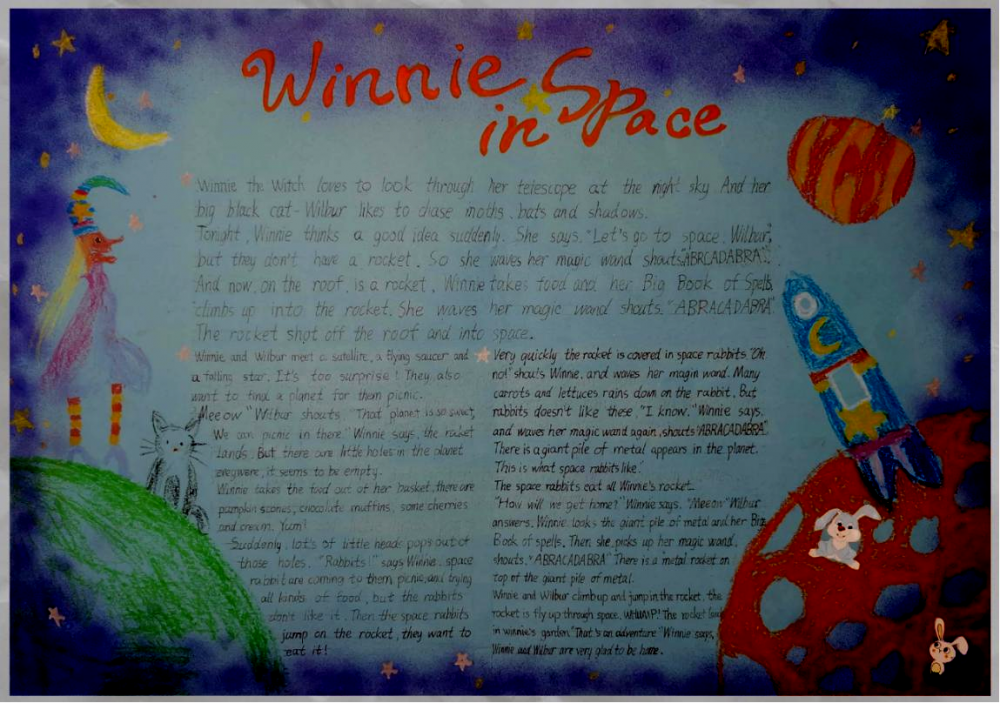 Winnie in Space
Winnie the Witch loves to look through her telescope at the night sky And her
big black cat-Wilbur likes to chase moths, bats and shadows.
Tonight, Winnie thinks a good idea suddenly. She says, "Let's go to space, Wilbur,
but they don't have a rocket. So she waves her magic wand shouts "ABRCADABRA".
And now, on the roof, is a rocket, Winnie takes food and her Big Book of Spells,
climbs up into the rocket. She waves her magic wand shouts. "ABRACADABRA"
The rocket shot off the roof and into space.
Winnie and Wilbur meet a satellite, a flying saucer and
a falling star. It's too surprise! They also
want to find a planet for them picnic.
Meeow" Wilbur shouts. That planet is so sweet,
We can picnic in there." Winnie says, the rocket
lands. But there are little holes in the planet
everywere, it seems to be empty.
Winnie takes the food out of her basket, there are
pumpkin scones, chocolate muffins, some cherries
and cream. Yum!
Suddenly, lot's of little heads pops out of
those holes. "Rabbits!" says Winnie. space
rabbit are coming to them picnic, and trying
all kinds of food, but the rabbits
don't like it. Then the space rabbits
jump on the rocket, they want to
eat it!
Very quickly the rocket is covered in space rabbits. "Oh,
no!" shouts Winnie. and waves her magin wand. Many
carrots and lettuces rains down on the rabbit. But
rabbits doesn't like these. "I know," Winnie says,
and waves her magic wand again, shouts "ABRACADABRA"
There is a giant pile of metal appears in the planet.
This is what space rabbits like.
The space rabbits eat all Winnie's rocket.
"How will we get home?" Winnie says. "Meeow" Wilbur
answers. Winnie looks the giant pile of metal and her Big
Book of spells. Then she picks up her magic wand,
shouts, "ABRACADABRA" There is a metal rocket on
top of the giant pile of metal.
Winnie and Wilbur climb up and jump in the rocket, the
rocket is fly up through space. WHUMP! The rocket
in winnie's garden "That's an adventure" Winnie says,
Winnie and Wilbur are very glad to be home.